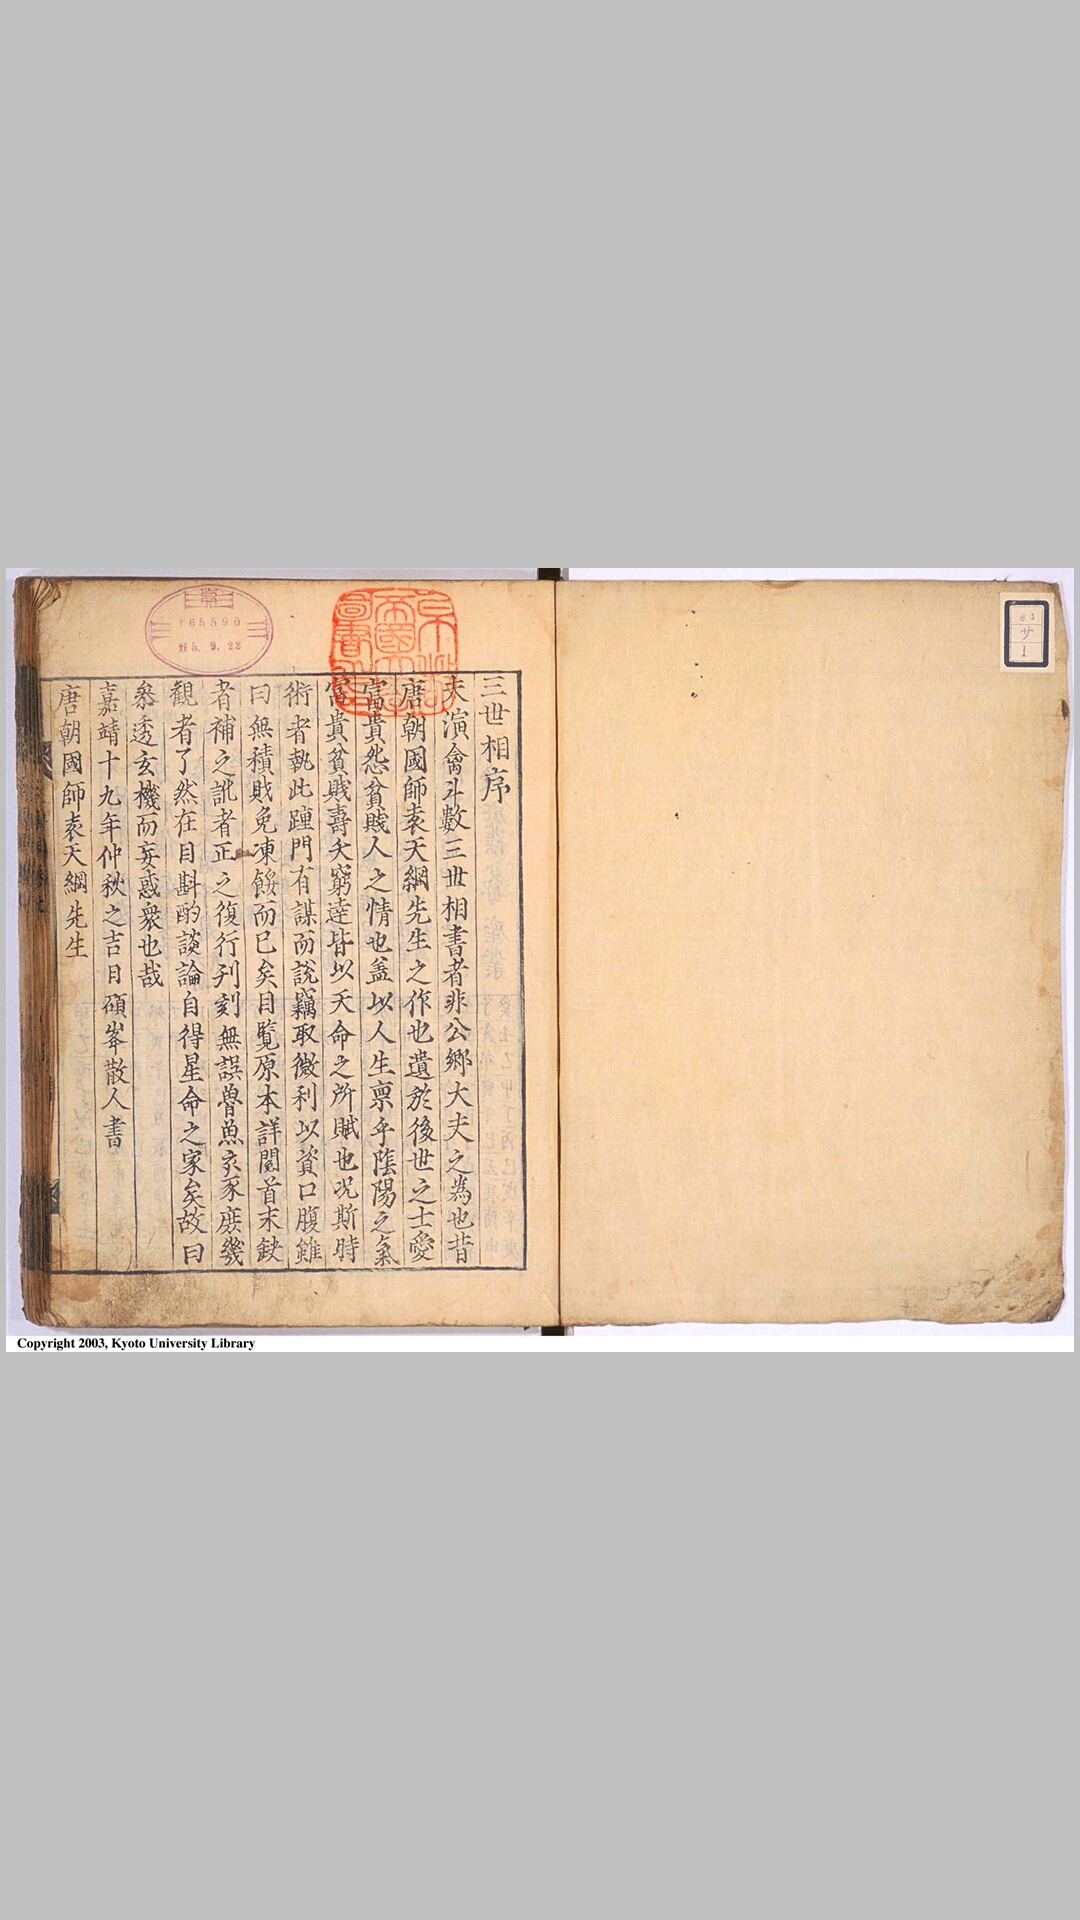 三世相序
夫演禽斗數三世相書者非公鄉大夫之為也昔
唐朝國師袁天綱先生之作也遺於後世之士愛
富貴怨貧賤人之情也盖以人生禀乎陰陽之氣
富貴貧賤壽夭窮達皆以天命之所賦也况斯時
術者執此踵門有謀而說竊取微利以資口腹雖
曰無積貯免凍餒而已矣目覽原本詳閱首末缺
者補之訛者正之復行刋刻無誤魯魚亥豕庶幾
觀者了然在目斟酌談論自得星命之家矣故曰
叅透玄機而妄惑衆也哉
嘉靖十九年仲秋之吉日碩峯散人書
唐朝國師袁天綱先生
165590
5. 9. 22
83
サ
1
Copyright 2003, Kyoto University Library